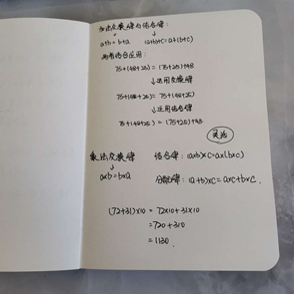 加法交换律与结合律:
a+b=b+a (a+b)+c=a+(b+c)
两者结合应用:
75+(48+25)=(75+25)+48
↓运用交换律
75+(48+25)=75+(48+25)
↓运用结合律
75+(48+25)=(75+25)+48
乘法
乘法交换律 结合律:(a×b)×c=a×(b×c)
↓
a×b=b×a 分配律:(a+b)×c=a×c+b×c.
(72+31)×10=72×10+31×10
=720+310
=1130.